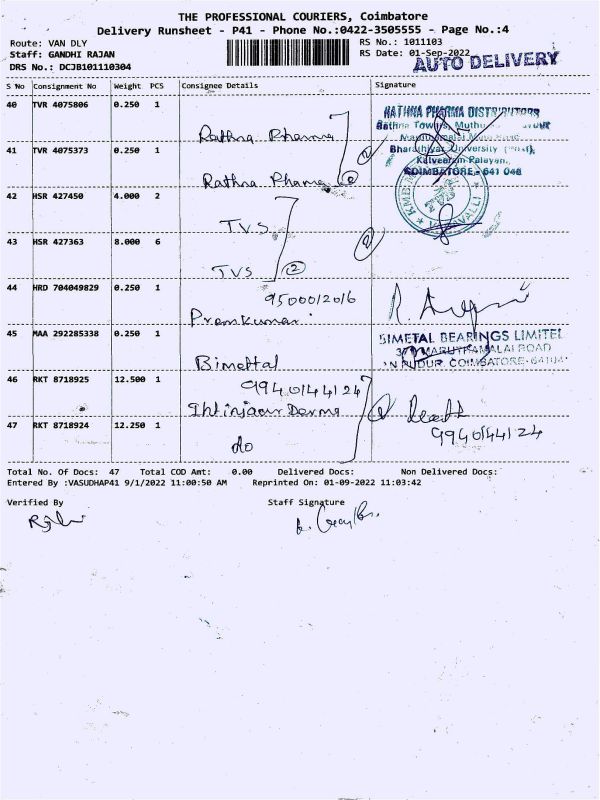 THE PROFESSIONAL COURIERS, Coimbatore
Delivery Runsheet - P41 - Phone No.:0422-3505555 - Page No.:4
Route: VAN DLY
RS No.: 1011103
Staff: GANDHI RAJAN
RS Date: 01-Sep-2022
DRS No.: DCJB101110304
AUTO DELIVERY
S No Consignment No Weight PCS Consignee Details Signature
40 TVR 4075806 0.250 1 Rathna Pharma
RATHNA PHARMA DISTRIBUTORS
Rathna Towers,
Bharathiyar University
Kalveeram Palayam,
COIMBATORE - 641 046
41 TVR 4075373 0.250 1 Rathna Pharma 2
2
42 HSR 427450 4.000 2 TVS
43 HSR 427363 8.000 6 TVS 2
2
44 HRD 704049829 0.250 1 9500012016
Premkumar
45 MAA 292285338 0.250 1 Bimettal
BIMETAL BEARINGS LIMITED
MARUTHAMALAI ROAD
COIMBATORE-
46 RKT 8718925 12.500 1 9940144124
9940144124
47 RKT 8718924 12.250 1 do
Total No. Of Docs: 47 Total COD Amt: 0.00 Delivered Docs: Non Delivered Docs:
Entered By :VASUDHAP41 9/1/2022 11:00:50 AM Reprinted On: 01-09-2022 11:03:42
Verified By
Staff Signature